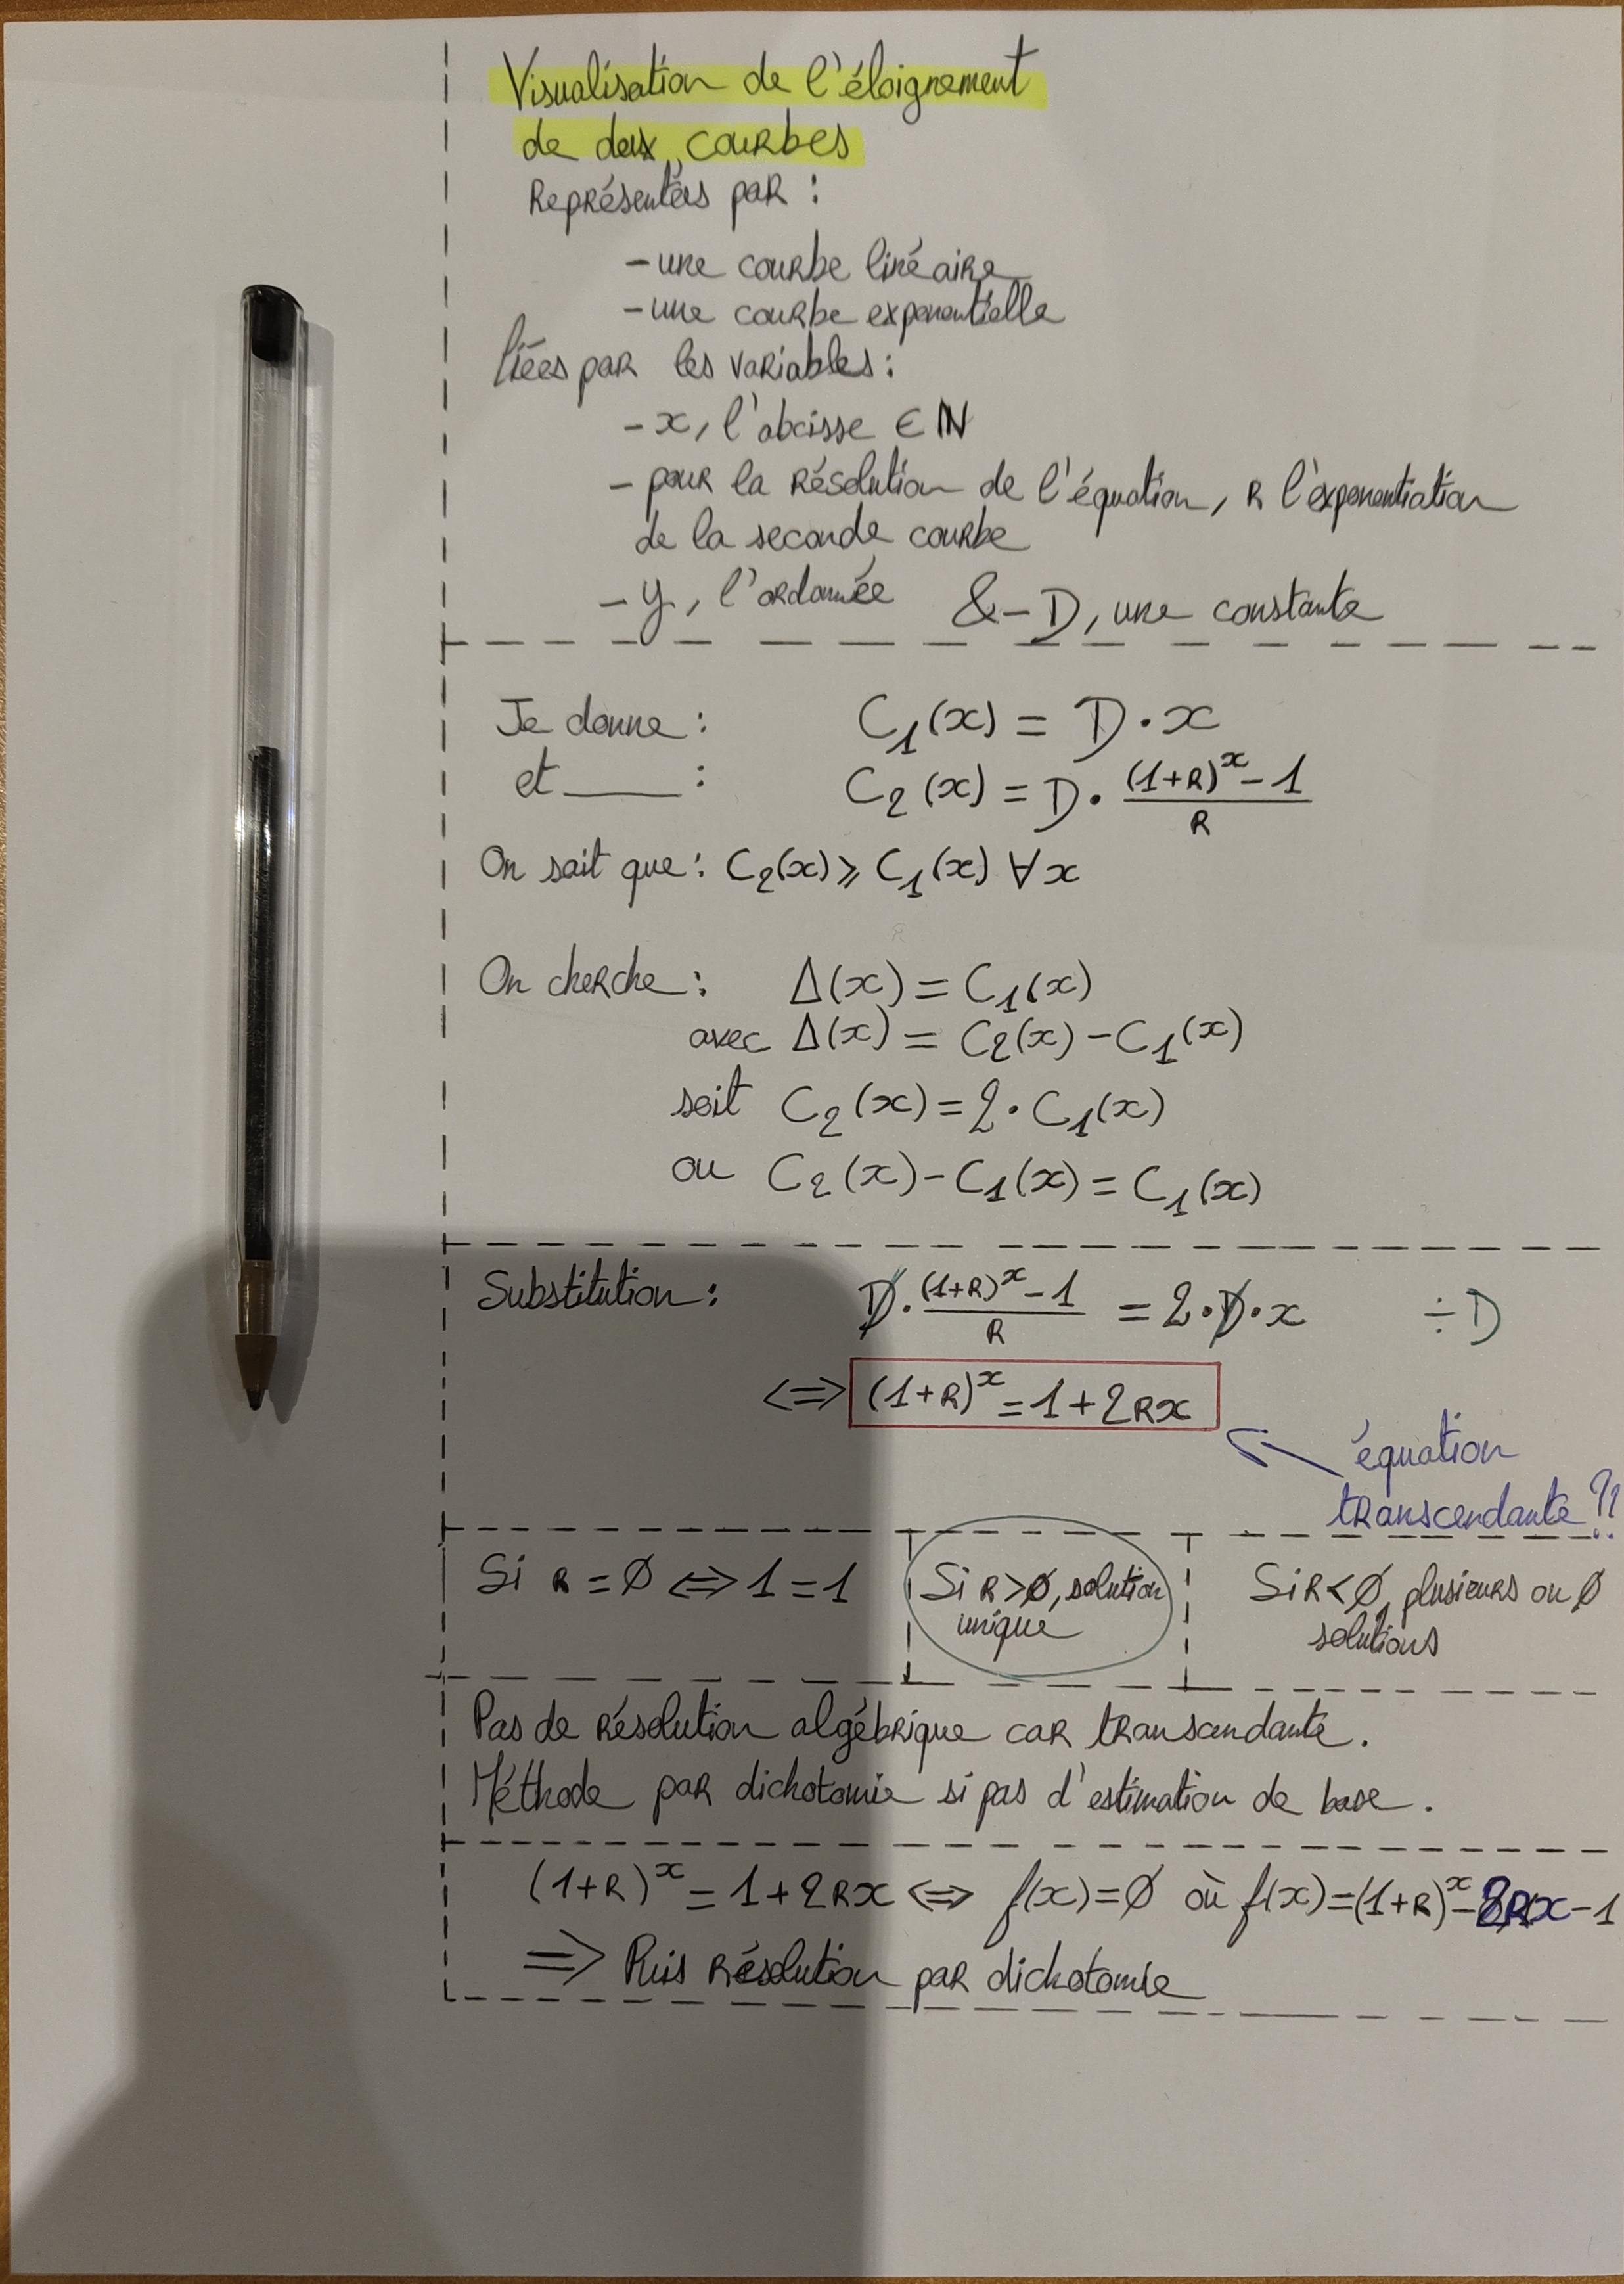 Visualisation de l'éloignement
de deux courbes
Représentées par :
- une courbe linéaire
- une courbe exponentielle
liées par les variables :
- x, l'abcisse ∈ ℕ
- pour la résolution de l'équation, R l'exponentiation
de la seconde courbe
- y, l'ordonnée & - D, une constante
Je donne : C₁(x) = D · x
et ____ : C₂(x) = D · ((1+R)^x - 1)/R
On sait que : C₂(x) ⩾ C₁(x) ∀x
On cherche : Δ(x) = C₁(x)
avec Δ(x) = C₂(x) - C₁(x)
soit C₂(x) = 2 · C₁(x)
ou C₂(x) - C₁(x) = C₁(x)
Substitution : D · ((1+R)^x - 1)/R = 2 · D · x ÷ D
<=> (1+R)^x = 1 + 2Rx
équation
transcendante ?!
Si R = Ø <=> 1 = 1
Si R > Ø, solution
unique
Si R < Ø, plusieurs ou Ø
solutions
Pas de résolution algébrique car transcendante.
Méthode par dichotomie si pas d'estimation de base.
(1+R)^x = 1 + 2Rx <=> f(x) = Ø où f(x) = (1+R)^x - 2Rx - 1
=> Puis résolution par dichotomie